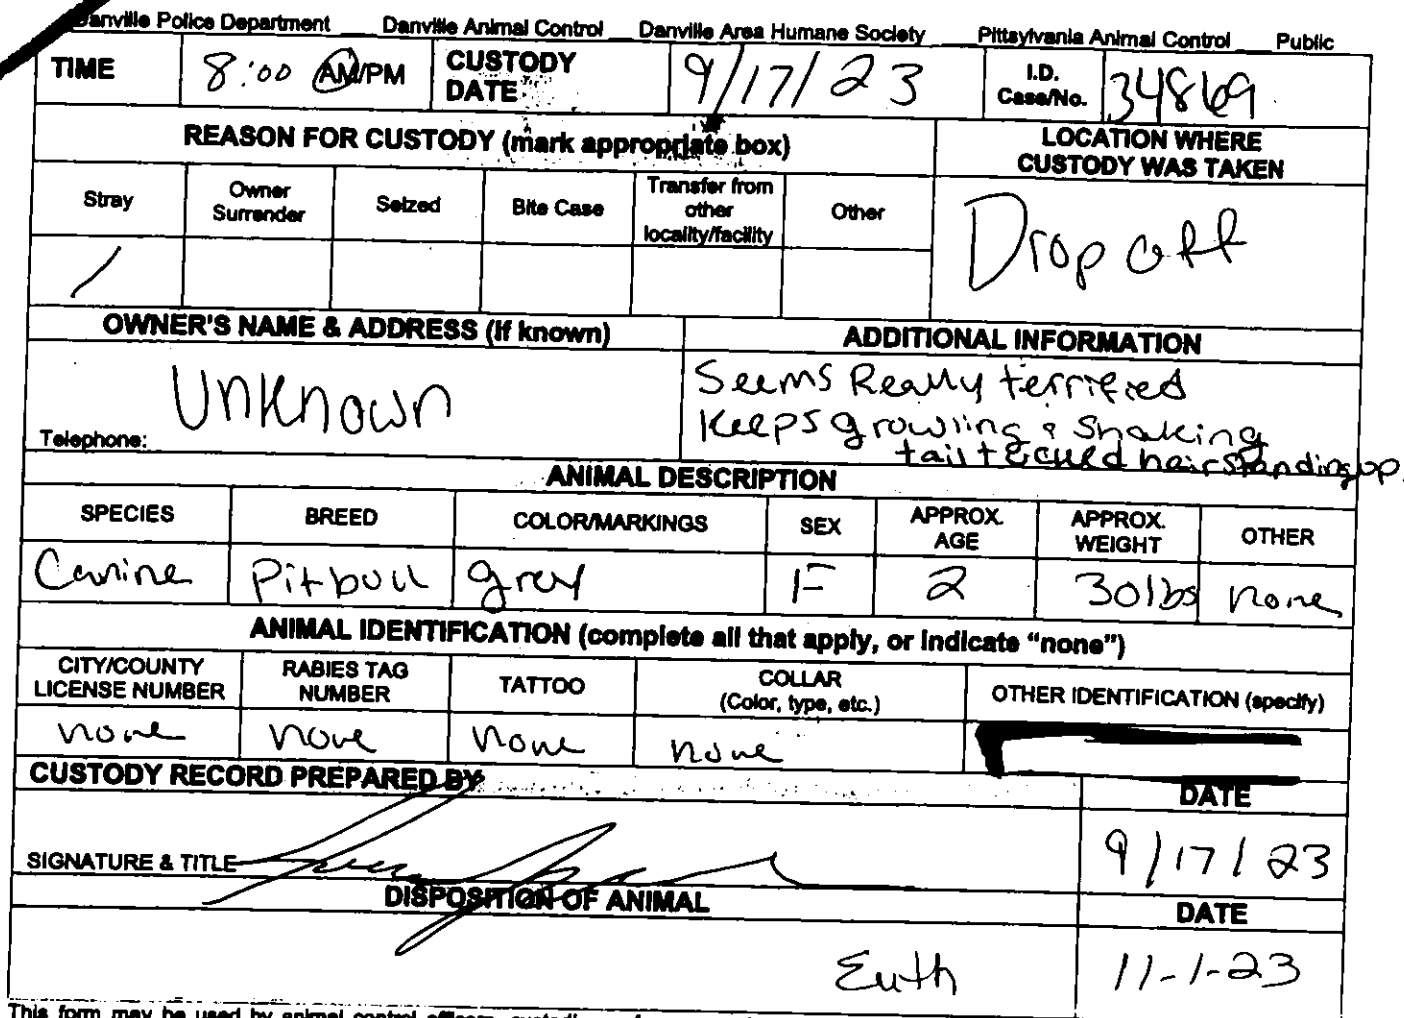 Danville Police Department Danville Animal Control Danville Area Humane Society Pittsylvania Animal Control Public
TIME 8:00 AM/PM CUSTODY DATE 9/17/23 I.D. Case/No. 34869
REASON FOR CUSTODY (mark appropriate box) LOCATION WHERE CUSTODY WAS TAKEN
Stray Owner Surrender Seized Bite Case Transfer from other locality/facility Other
/ Drop off
OWNER'S NAME & ADDRESS (if known)
Unknown
Telephone:
ADDITIONAL INFORMATION
Seems Really terrified
Keeps growling & shaking
tail tucked hair standing up.
ANIMAL DESCRIPTION
SPECIES BREED COLOR/MARKINGS SEX APPROX. AGE APPROX. WEIGHT OTHER
Canine Pitbull grey F 2 30lbs none
ANIMAL IDENTIFICATION (complete all that apply, or indicate "none")
CITY/COUNTY LICENSE NUMBER RABIES TAG NUMBER TATTOO COLLAR (Color, type, etc.) OTHER IDENTIFICATION (specify)
none none none none
CUSTODY RECORD PREPARED BY DATE
SIGNATURE & TITLE 9/17/23
DISPOSITION OF ANIMAL DATE
Euth 11-1-23
This form may be used by animal control officers,